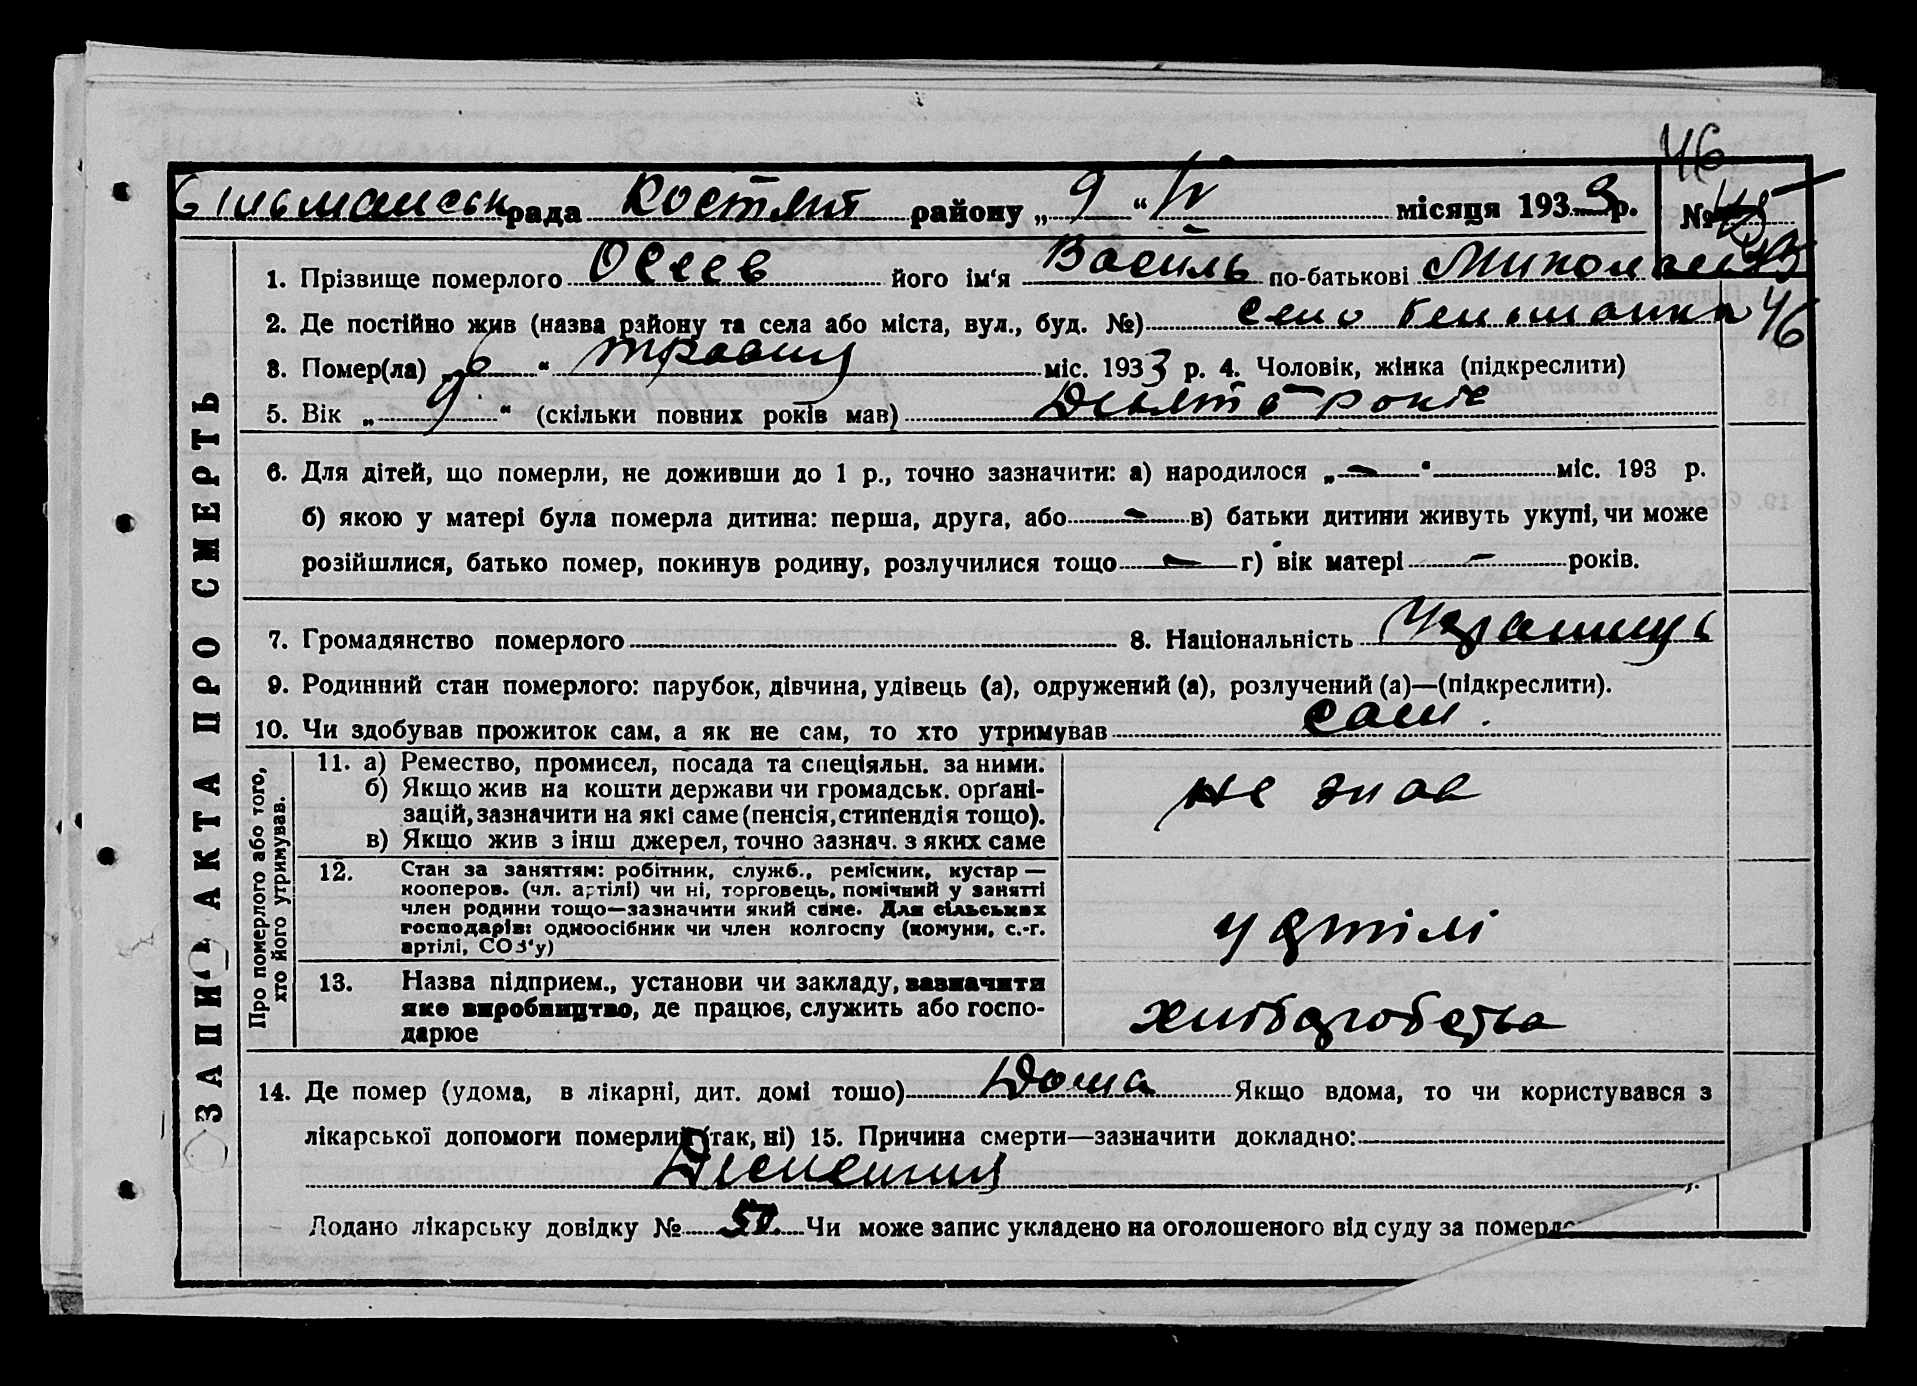 46
рада Костянт району „ 9 “ IV місяця 1933 р. №
ЗАПИС АКТА ПРО СМЕРТЬ
1. Прізвище померлого Осеев його ім'я Василь по-батькові
2. Де постійно жив (назва району та села або міста, вул., буд. №) село 46
3. Помер(ла) „ 6 “ травня міс. 1933 р. 4. Чоловік, жінка (підкреслити)
5. Вік „ 9 “ (скільки повних років мав) Девять років
6. Для дітей, що померли, не доживши до 1 р., точно зазначити: а) народилося „ — “ міс. 193 р.
б) якою у матері була померла дитина: перша, друга, або — в) батьки дитини живуть укупі, чи може
розійшлися, батько помер, покинув родину, розлучилися тощо — г) вік матері — років.
7. Громадянство померлого 8. Національність Украинец
9. Родинний стан померлого: парубок, дівчина, удівець (а), одружений (а), розлучений (а)—(підкреслити).
10. Чи здобував прожиток сам, а як не сам, то хто утримував сам.
Про померлого або того,
хто його утримував.
11. а) Ремество, промисел, посада та спеціяльн. за ними.
б) Якщо жив на кошти держави чи громадськ. орґані-
зацій, зазначити на які саме (пенсія, стипендія тощо).
в) Якщо жив з інш джерел, точно зазнач. з яких саме
не знав
12. Стан за заняттям: робітник, служб., ремісник, кустар —
кооперов. (чл. артілі) чи ні, торговець, помічний у занятті
член родини тощо—зазначити який саме. Для сільських
господарів: одноосібник чи член колгоспу (комуни, с.-г.
артілі, СОЗ'у)
у артілі
13. Назва підприєм., установи чи закладу, зазначити
яке виробництво, де працює, служить або госпо-
дарює
14. Де помер (удома, в лікарні, дит. домі тошо) Дома Якщо вдома, то чи користувався з
лікарської допомоги померлий (так, ні) 15. Причина смерти—зазначити докладно:
Додано лікарську довідку № Чи може запис укладено на оголошеного від суду за померло